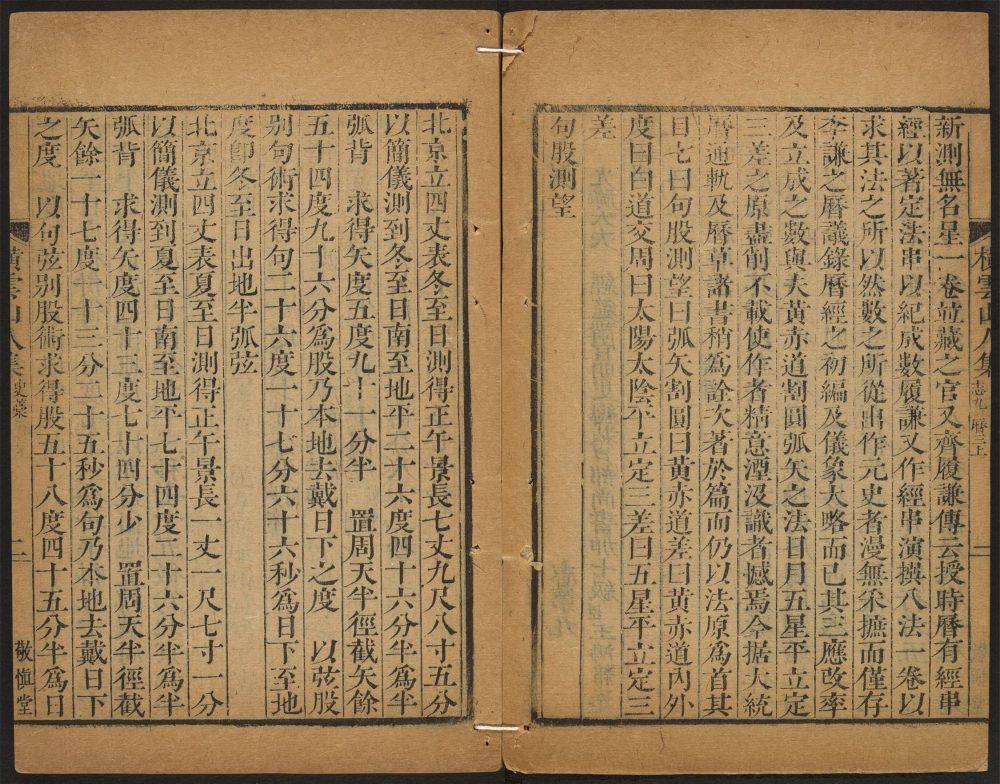 新測無名星一卷竝藏之官又齊履謙傳云授時曆有經串
經以著定法串以紀成數履謙又作經串演撰八法一卷以
求其法之所以然數之所從出作元史者漫無采摭而僅存
李謙之曆議錄曆經之初編及儀象大略而已其三應改率
及立成之數與夫黃赤道割圓弧矢之法日月五星平立定
三差之原盡削不載使作者精意湮沒識者憾焉今据大統
曆通軌及曆草諸書稍爲詮次著於篇而仍以法原爲首其
目七曰句股測望曰弧矢割圓曰黃赤道差曰黃赤道內外
度曰白道交周曰太陽太陰平立定三差曰五星平立定三
差
句股測望
橫雲山人集
志九
曆三上
一
北京立四丈表冬至日測得正午景長七丈九尺八寸五分
以簡儀測到冬至日南至地平二十六度四十六分半爲半
弧背 求得矢度五度九十一分半 置周天半徑截矢餘
五十四度九十六分爲股乃本地去戴日下之度 以弦股
别句術求得句二十六度一十七分六十六秒爲日下至地
度卽冬至日出地半弧弦
北京立四丈表夏至日測得正午景長一丈一尺七寸一分
以簡儀測到夏至日南至地平七十四度二十六分半爲半
弧背 求得矢度四十三度七十四分少 置周天半徑截
矢餘一十七度一十三分二十五秒爲句乃本地去戴日下
之度 以句弦别股術求得股五十八度四十五分半爲日
橫雲山人集
史藁
二
敬愼堂